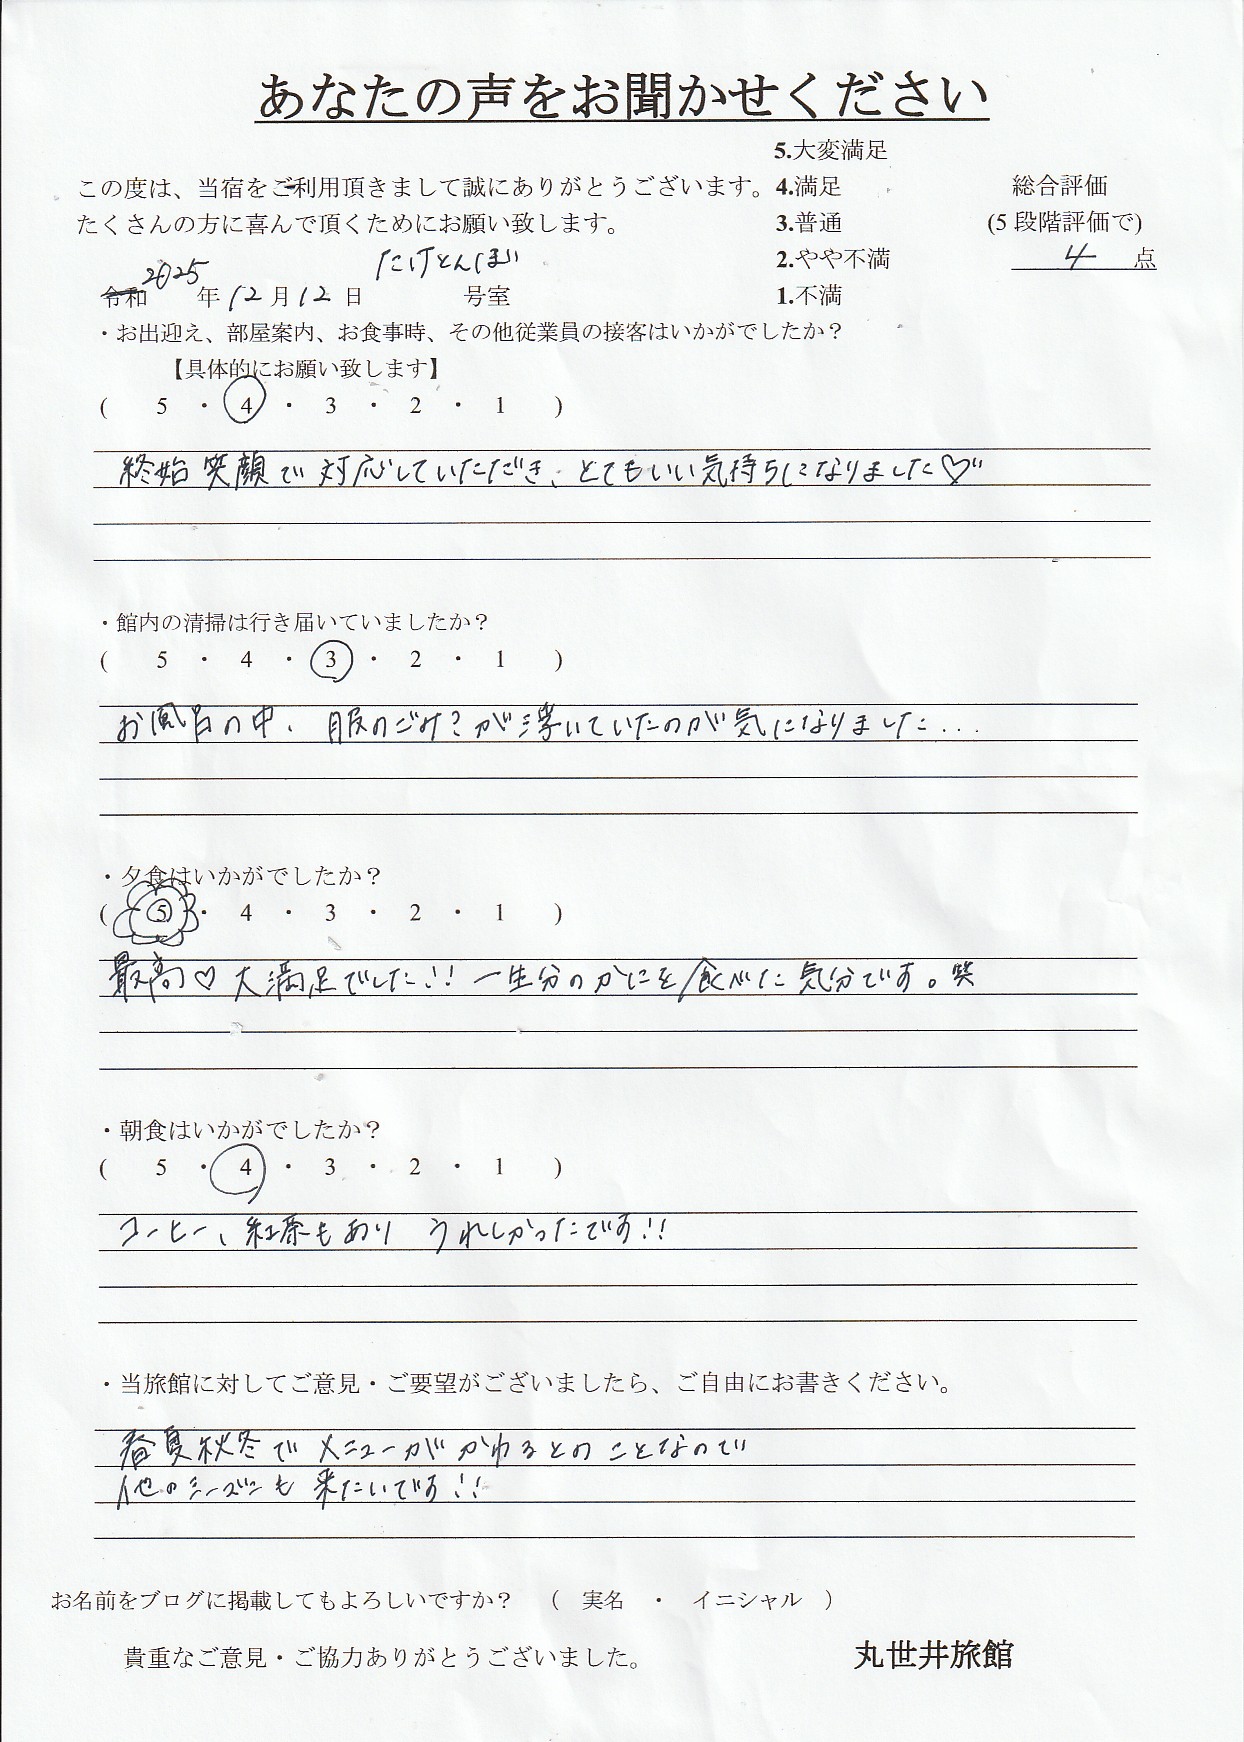 あなたの声をお聞かせください
5.大変満足
この度は、当宿をご利用頂きまして誠にありがとうございます。4.満足 総合評価
たくさんの方に喜んで頂くためにお願い致します。 3.普通 (5段階評価で)
2.やや不満 4 点
令和 2025 年 12 月 12 日 たけとんぼ 号室 1.不満
・お出迎え、部屋案内、お食事時、その他従業員の接客はいかがでしたか?
【具体的にお願い致します】
( 5 ・ 4 ・ 3 ・ 2 ・ 1 )
終始笑顔で対応していただき、とてもいい気持ちになりました♡
・館内の清掃は行き届いていましたか?
( 5 ・ 4 ・ 3 ・ 2 ・ 1 )
お風呂の中、服のごみ?が浮いていたのが気になりました...
・夕食はいかがでしたか?
( 5 ・ 4 ・ 3 ・ 2 ・ 1 )
最高♡大満足でした!!一生分のかにを食べた気分です。笑
・朝食はいかがでしたか?
( 5 ・ 4 ・ 3 ・ 2 ・ 1 )
コーヒー、紅茶もあり うれしかったです!!
・当旅館に対してご意見・ご要望がございましたら、ご自由にお書きください。
春夏秋冬でメニューがかわるとのことなので
他のシーズンも来たいです!!
お名前をブログに掲載してもよろしいですか? ( 実名 ・ イニシャル )
貴重なご意見・ご協力ありがとうございました。 丸世井旅館